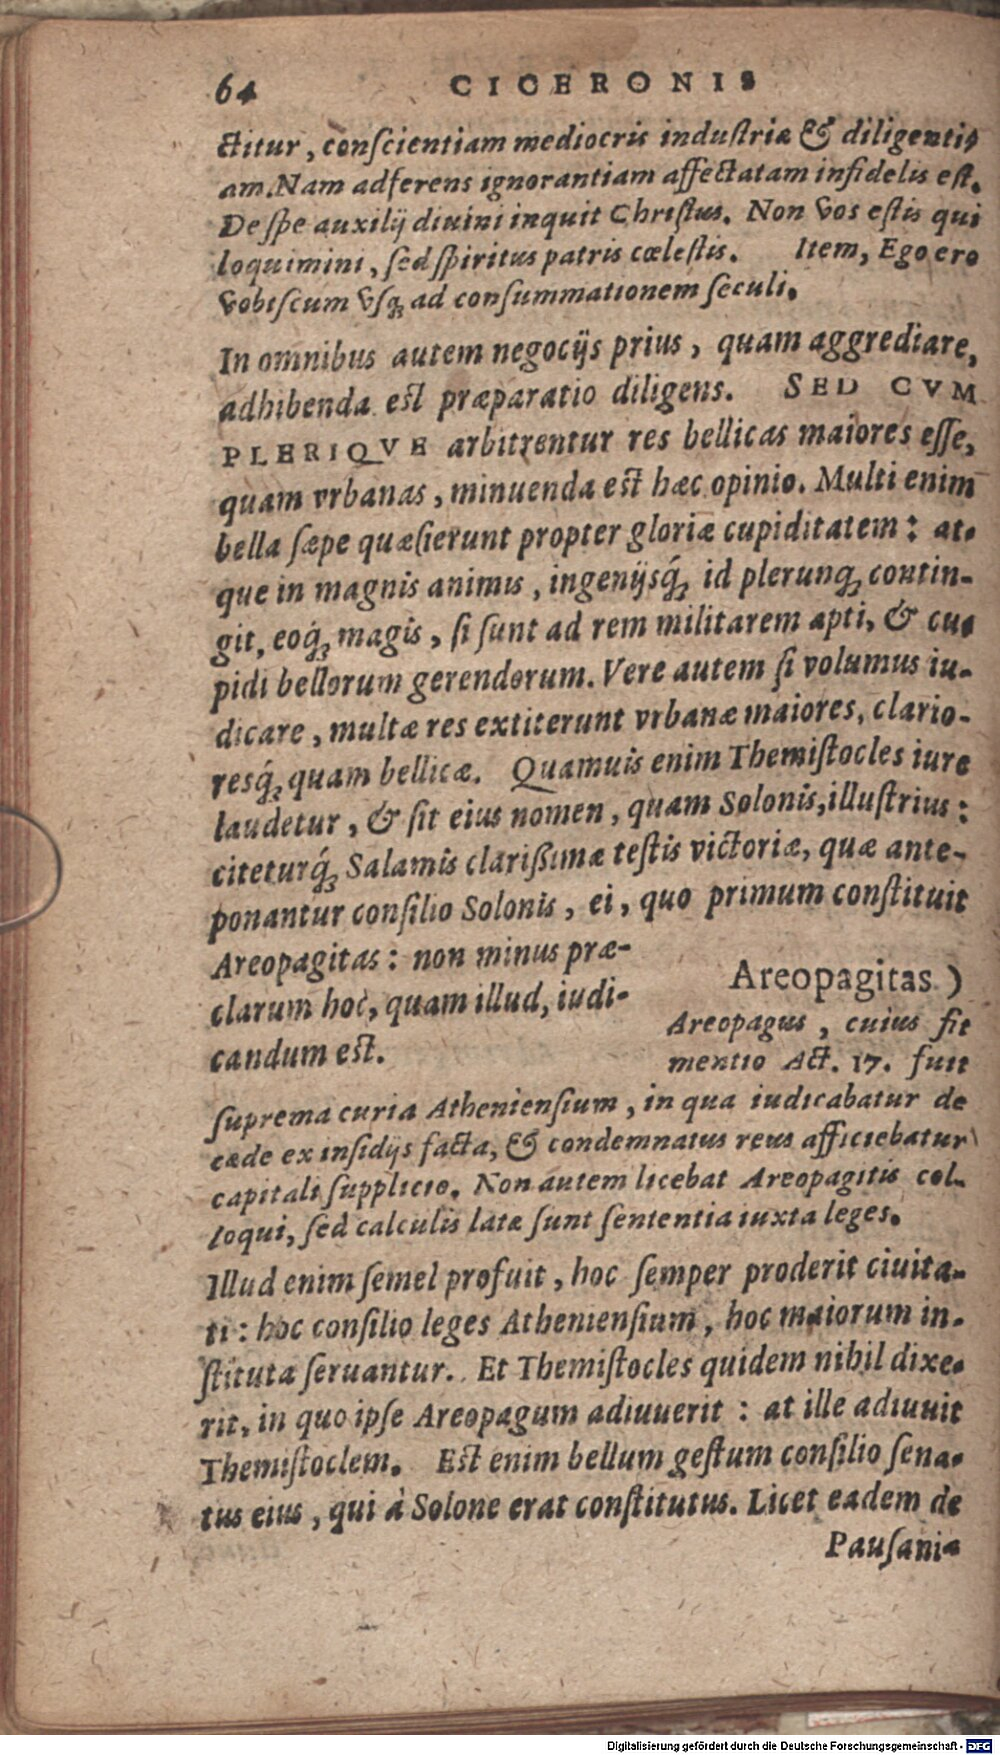 64 CICERONIS
ctitur, conſcientiam mediocris induſtriæ & diligenti,
am. Nam adferens ignorantiam affectatam infidelis eſt.
De ſpe auxilij diuini inquit Chriſtus. Non vos eſtis qui
loquimini, ſed ſpiritus patris cœleſtis. Item, Ego ero
vobiſcum vſq; ad conſummationem ſeculi.
In omnibus autem negocijs prius, quam aggrediare,
adhibenda eſt præparatio diligens. SED CVM
PLERIQVE arbitrentur res bellicas maiores eſſe,
quam vrbanas, minuenda eſt hæc opinio. Multi enim
bella ſæpe quæſierunt propter gloriæ cupiditatem: at-
que in magnis animis, ingenijsq́; id plerunq; contin-
git, eoq́; magis, ſi ſunt ad rem militarem apti, & cu-
pidi bellorum gerendorum. Vere autem ſi volumus iu-
dicare, multæ res extiterunt vrbanæ maiores, clario-
resq́; quam bellicæ. Quamuis enim Themiſtocles iure
laudetur, & ſit eius nomen, quam Solonis, illuſtrius:
citeturq́; Salamis clarißimæ teſtis victoriæ, quæ ante-
ponantur conſilio Solonis, ei, quo primum conſtituit
Areopagitas: non minus præ-
clarum hoc, quam illud, iudi-
candum eſt.
Areopagitas)
Areopagus, cuius fit
mentio Act. 17. fuit
ſuprema curia Athenienſium, in qua iudicabatur de
cæde ex inſidijs facta, & condemnatus reus afficiebatur
capitali ſupplicio. Non autem licebat Areopagitis col-
loqui, ſed calculis latæ ſunt ſententia iuxta leges.
Illud enim ſemel profuit, hoc ſemper proderit ciuita-
ti: hoc conſilio leges Athenienſium, hoc maiorum in-
ſtituta ſeruantur. Et Themiſtocles quidem nihil dixe-
rit, in quo ipſe Areopagum adiuuerit: at ille adiuuit
Themiſtoclem. Eſt enim bellum geſtum conſilio ſena-
tus eius, qui à Solone erat conſtitutus. Licet eadem de
Pauſania
Digitalisierung gefördert durch die Deutsche Forschungsgemeinschaft - DFG